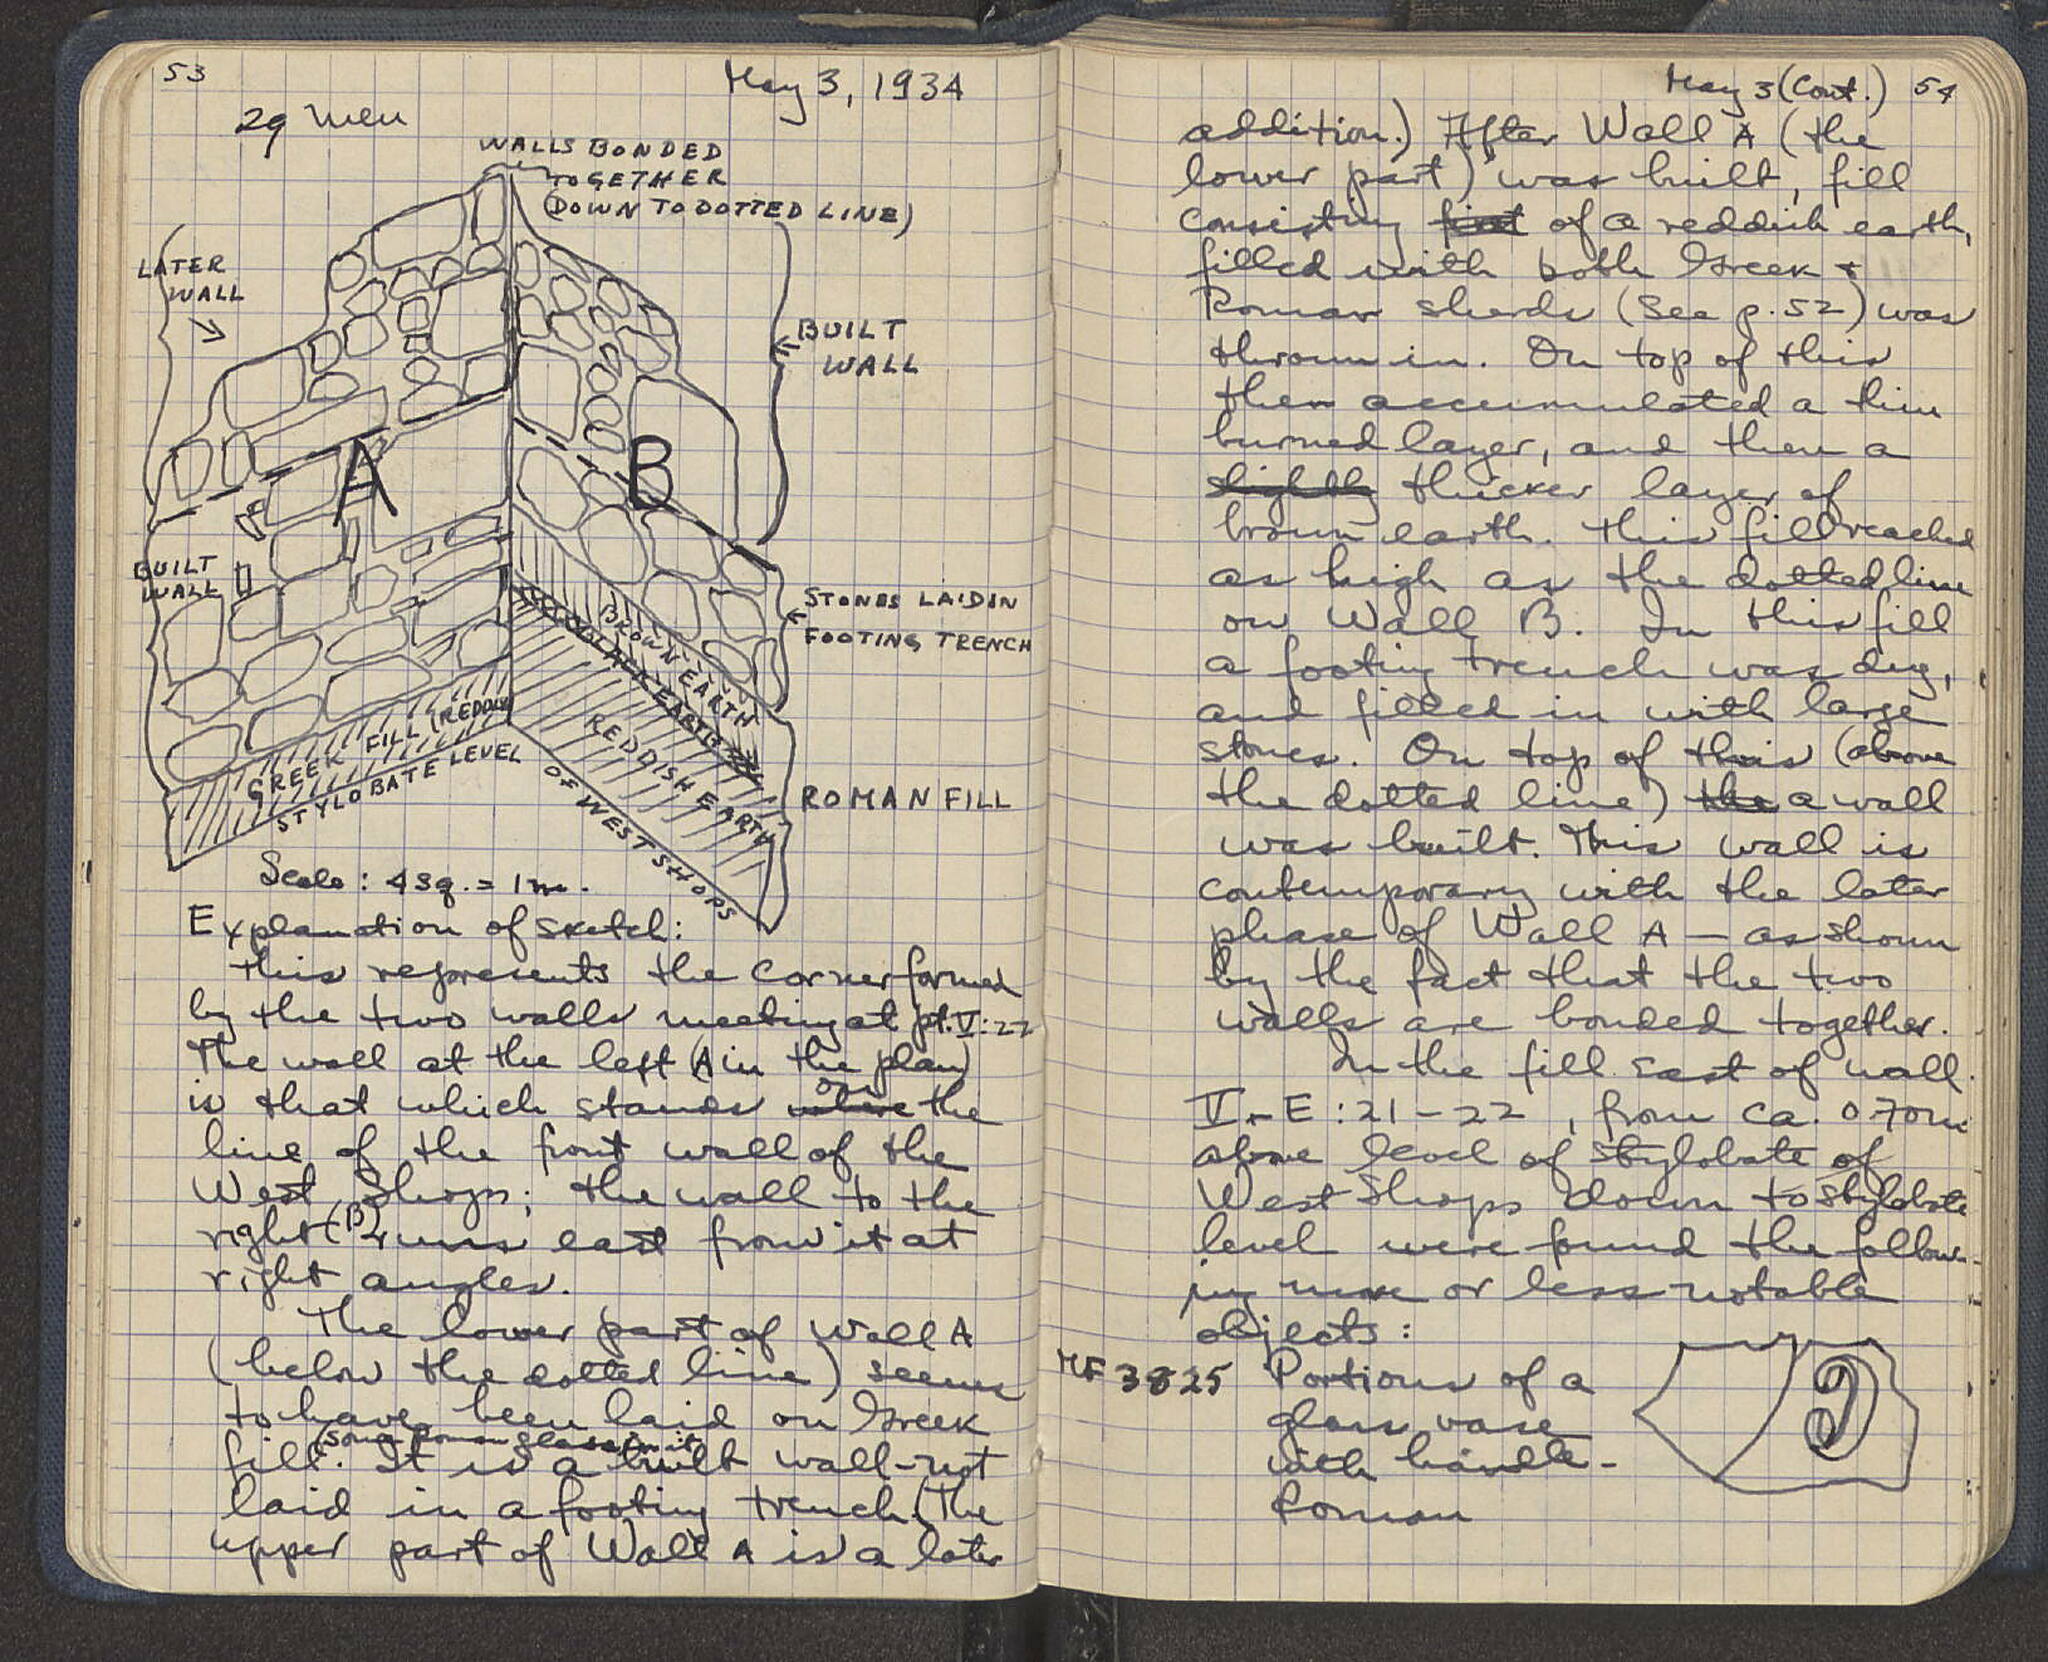 53
May 3, 1934
29 men
WALLS BONDED
TOGETHER
(DOWN TO DOTTED LINE)
LATER
WALL
BUILT
WALL
A
B
BUILT
WALL
STONES LAID IN
FOOTING TRENCH
BROWN EARTH
BLACK EARTH
REDDISH EARTH
GREEK FILL (REDDISH
STYLOBATE LEVEL
OF WEST SHOPS
ROMAN FILL
Scale: 4 sq. = 1 m.
Explanation of sketch:
This represents the corner formed
by the two walls meeting at pt. V:22
The wall at the left (A in the plan)
is that which stands on the
line of the front wall of the
West Shops; the wall to the
right (B) runs east from it at
right angles.
The lower part of Wall A
(below the dotted line) seems
to have been laid on Greek
(some Roman glass in it)
fill. It is a built wall - not
laid in a footing trench. (The
upper part of Wall A is a later
May 3 (Cont.) 54
addition.) After Wall A (the
lower part) was built, fill
consisting of a reddish earth,
filled with both Greek +
Roman sherds (See p. 52) was
thrown in. On top of this
then accumulated a thin
burned layer, and then a
slightly thicker layer of
brown earth. This fill reached
as high as the dotted line
on Wall B. In this fill
a footing trench was dug,
and filled in with large
stones. On top of this (above
the dotted line) the a wall
was built. This wall is
contemporary with the later
phase of Wall A — as shown
by the fact that the two
walls are bonded together.
In the fill east of wall
: 21 - 22, from ca. 0.70 m
above level of stylobate of
West Shops down to stylobate
level were found the follow-
ing more or less notable
objects:
MF 3825 Portions of a
glass vase
with handle -
Roman